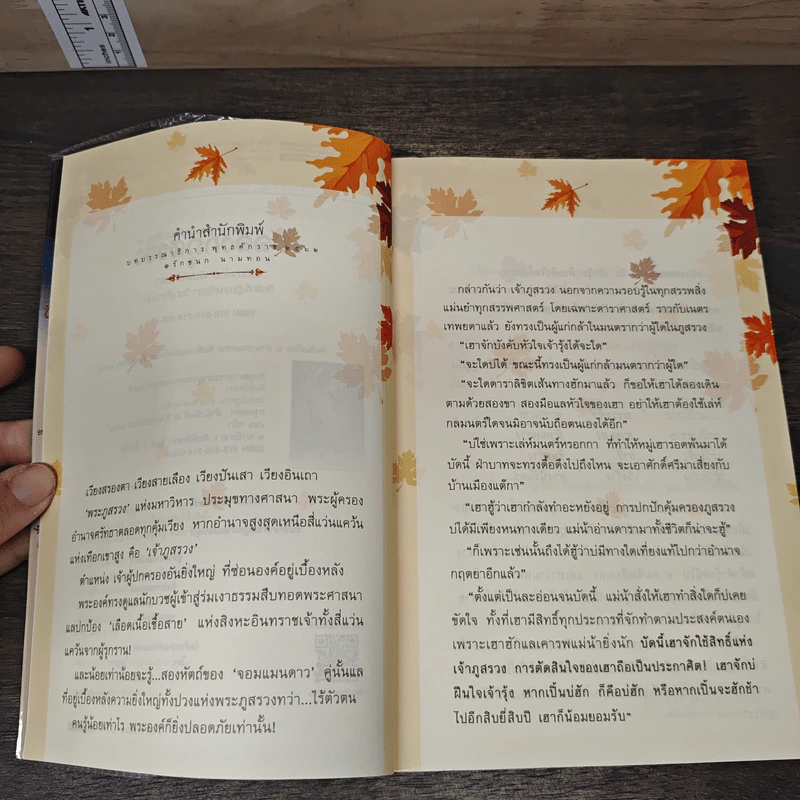 คำนำสำนักพิมพ์
บทบรรณาธิการ พุทธศักราช ๒๕๖๒
รักชนก นามทอน
เวียงสรองตา เวียงสายเลือง เวียงปันเสา เวียงอินเถา
'พระภูสรวง' แห่งมหาวิหาร ประมุขทางศาสนา พระผู้ครอง
อำนาจศรัทธาตลอดทุกคุ้มเวียง หากอำนาจสูงสุดเหนือสี่แว่นแคว้น
แห่งเทือกเขาสูง คือ 'เจ้าภูสรวง'
ตำแหน่ง เจ้าผู้ปกครองอันยิ่งใหญ่ ที่ซ่อนองค์อยู่เบื้องหลัง
พระองค์ทรงดูแลนักบวชผู้เข้าสู่ร่มเงาธรรมสืบทอดพระศาสนา
แลปกป้อง 'เลือดเนื้อเชื้อสาย' แห่งสิงหะอินทราชเจ้าทั้งสี่แว่น
แคว้นจากผู้รุกราน!
และน้อยเท่าน้อยจะรู้...สองหัตถ์ของ 'จอมแมนดาว' คู่นั้นแล
ที่อยู่เบื้องหลังความยิ่งใหญ่ทั้งปวงแห่งพระภูสรวงทว่า...ไร้ตัวตน
คนรู้น้อยเท่าไร พระองค์ก็ยิ่งปลอดภัยเท่านั้น!
กล่าวกันว่า เจ้าภูสรวง นอกจากความรอบรู้ในทุกสรรพสิ่ง
แม่นยำทุกสรรพศาสตร์ โดยเฉพาะดาราศาสตร์ ราวกับเนตร
เทพยดาแล้ว ยังทรงเป็นผู้แก่กล้าในมนตรากว่าผู้ใดในภูสรวง
"เฮาจักบังคับหัวใจเจ้ารุ้งได้จะใด"
"จะใดบ่ได้ ขณะนี้ทรงเป็นผู้แก่กล้ามนตรากว่าผู้ใด"
"จะใดดาราลิขิตเส้นทางฮักมาแล้ว ก็ขอให้เฮาได้ลองเดิน
ตามด้วยสองขา สองมือแลหัวใจของเฮา อย่าให้เฮาต้องใช้เล่ห์
กลมนตร์ใดจนมิอาจนับถือตนเองได้อีก"
"บ่ใช่เพราะเล่ห์มนตร์หรอกกา ที่ทำให้หมู่เฮารอดพ้นมาได้
บัดนี้ ฝ่าบาทจะทรงดื้อดึงไปถึงไหน จะเอาศักดิ์ศรีมาเสี่ยงกับ
บ้านเมืองแต๊กา"
"เฮาฮู้ว่าเฮากำลังทำอะหยังอยู่ การปกปักคุ้มครองภูสรวง
บ่ได้มีเพียงหนทางเดียว แม่น้าอ่านดารามาทั้งชีวิตก็น่าจะฮู้"
"ก็เพราะเช่นนั้นถึงได้ฮู้ว่าบ่มีทางใดเที่ยงแท้ไปกว่าอำนาจ
กฤตยาอีกแล้ว"
"ตั้งแต่เป็นละอ่อนจนบัดนี้ แม่น้าสั่งให้เฮาทำสิ่งใดก็บ่เคย
ขัดใจ ทั้งที่เฮามีสิทธิ์ทุกประการที่จักทำตามประสงค์ตนเอง
เพราะเฮาฮักแลเคารพแม่น้ายิ่งนัก บัดนี้เฮาจักใช้สิทธิ์แห่ง
เจ้าภูสรวง การตัดสินใจของเฮาถือเป็นประกาศิต! เฮาจักบ่
ฝืนใจเจ้ารุ้ง หากเปิ้นบ่ฮัก ก็คือบ่ฮัก หรือหากเปิ้นจะฮักช้า
ไปอีกสิบยี่สิบปี เฮาก็น้อมยอมรับ"